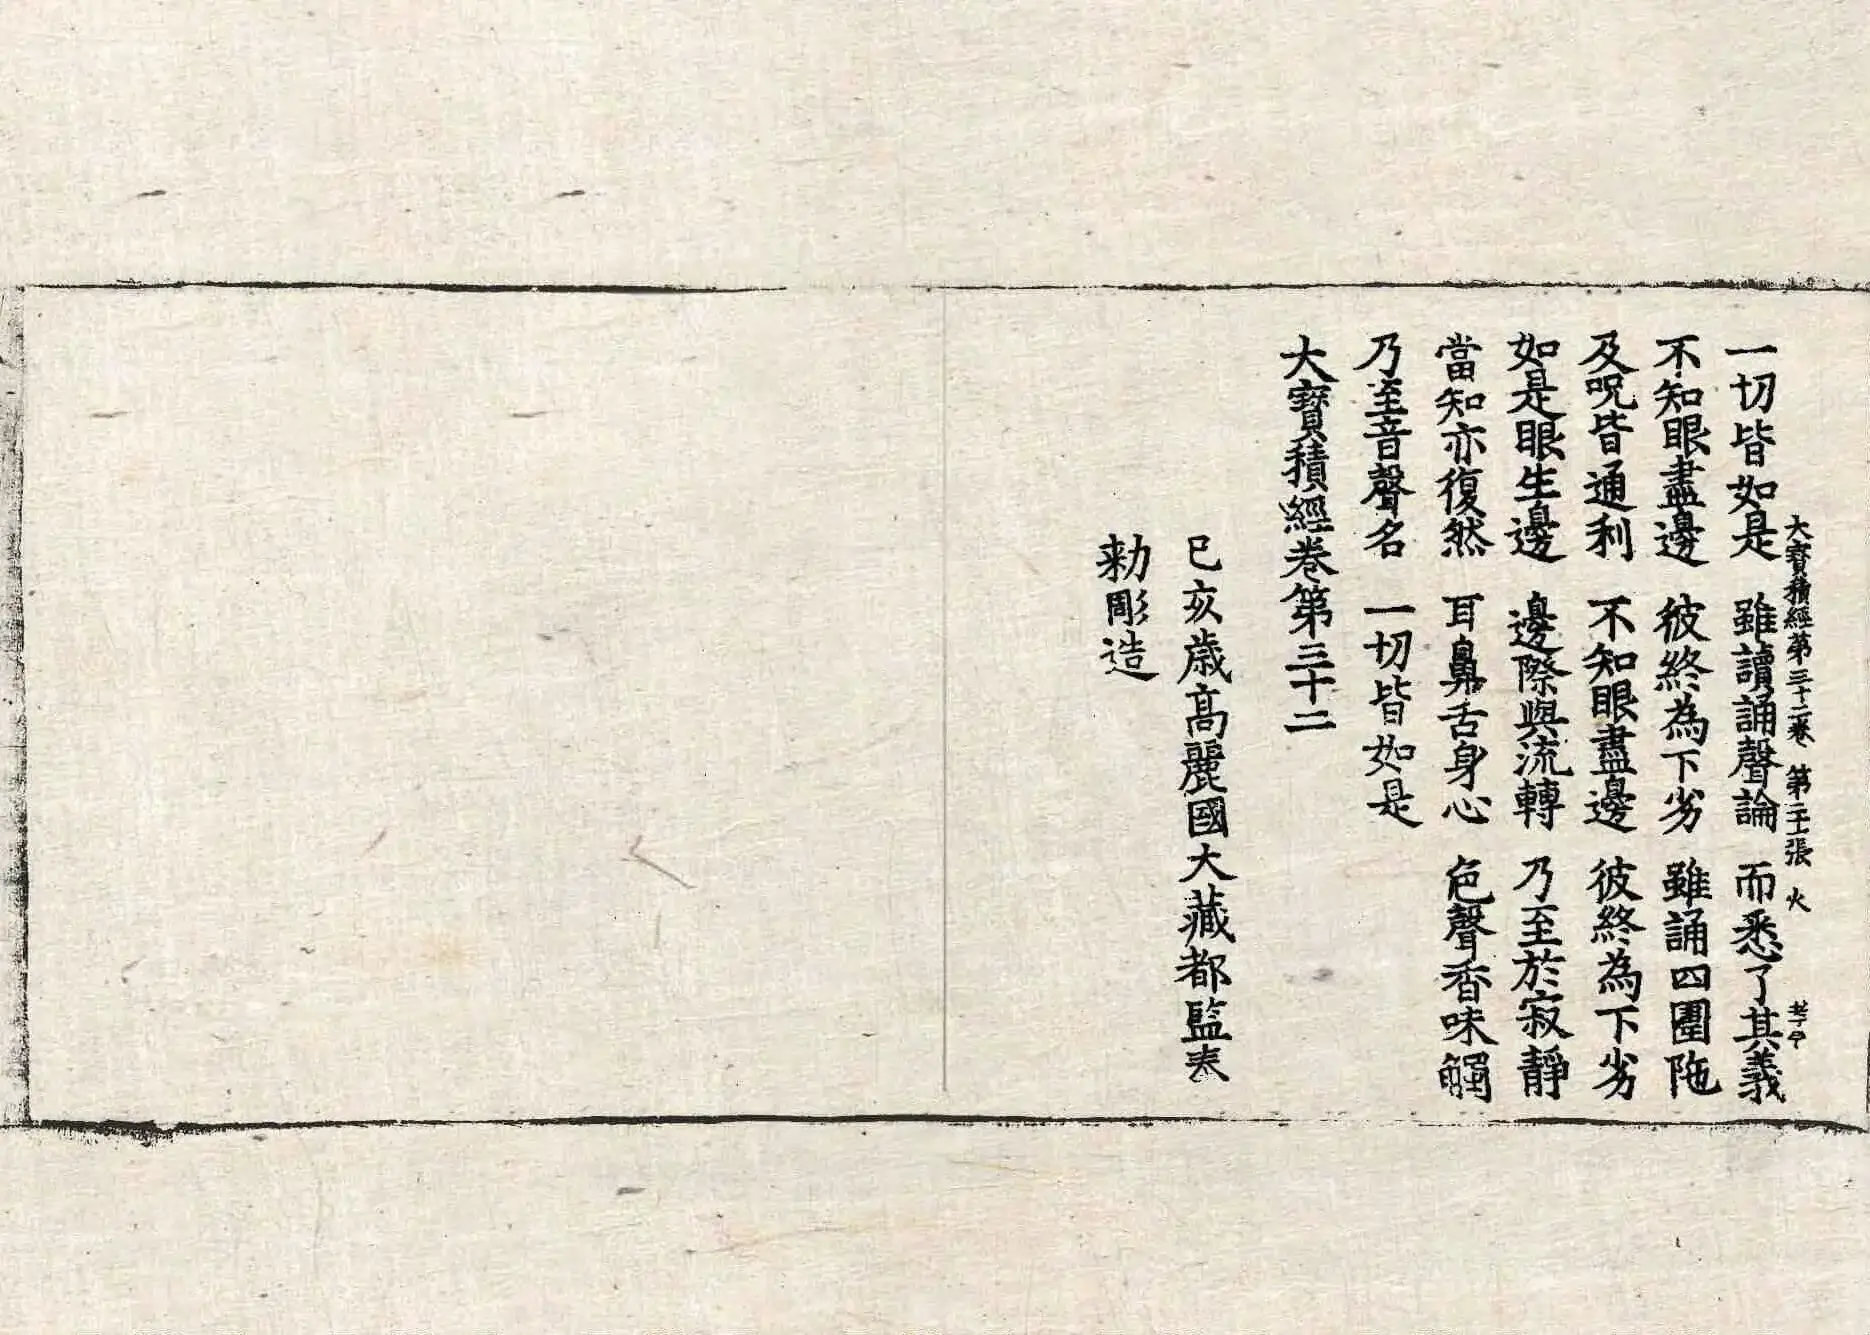 大寶積經第三十二卷 第二十張 火
一切皆如是 雖讀誦聲論 而悉了其義
不知眼盡邊 彼終為下劣 雖誦四圍陁
及呪皆通利 不知眼盡邊 彼終為下劣
如是眼生邊 邊際與流轉 乃至於寂靜
當知亦復然 耳鼻舌身心 色聲香味觸
乃至音聲名 一切皆如是
大寶積經卷第三十二
已亥歲高麗國大藏都監奉
勑彫造